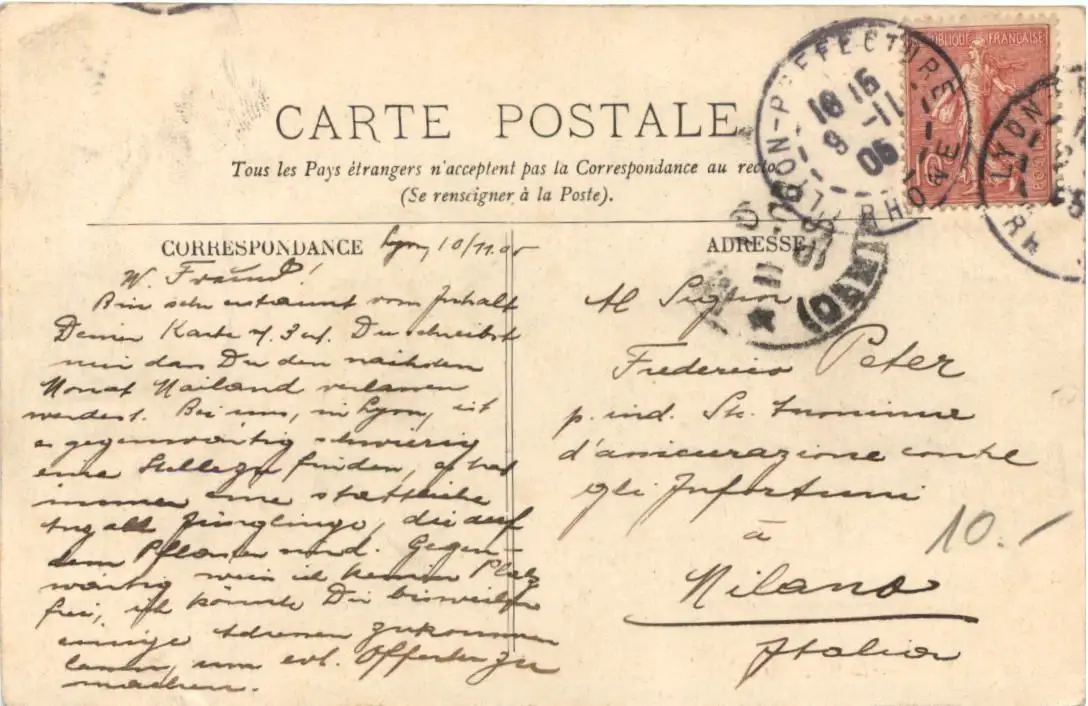 CARTE POSTALE
Tous les Pays étrangers n'acceptent pas la Correspondance au recto
(Se renseigner à la Poste).
CORRESPONDANCE
Lyon 10/11.05
W. Freund!
Bin sehr erstaunt vom Inhalt
Deiner Karte v. 3 ct. Du schreibst
mir dass Du den nächsten
Monat Mailand verlassen
werdest. Bei uns, in Lyon, ist
es gegenwärtig schwierig
eine Stelle zu finden, es hat
immer eine stattliche
Jünglinge, die auf
dem Pflaster sind. Gegen-
wärtig weiss ich keinen Platz
frei, ich könnte Dir bisweilen
einige Adressen zukommen
lassen, um evt. Offerten zu
machen.
ADRESSE
Al Signor
Frederico Peter
p. ind. Sta. Anonima
d'assicurazione contro
gli Infortuni
à
Milano
Italia
10.-
RÉPUBLIQUE FRANÇAISE
10
POSTES
LYON-PREFECTURE
RHONE
16 15
9 -11
05
LYON
RH
MILANO
11